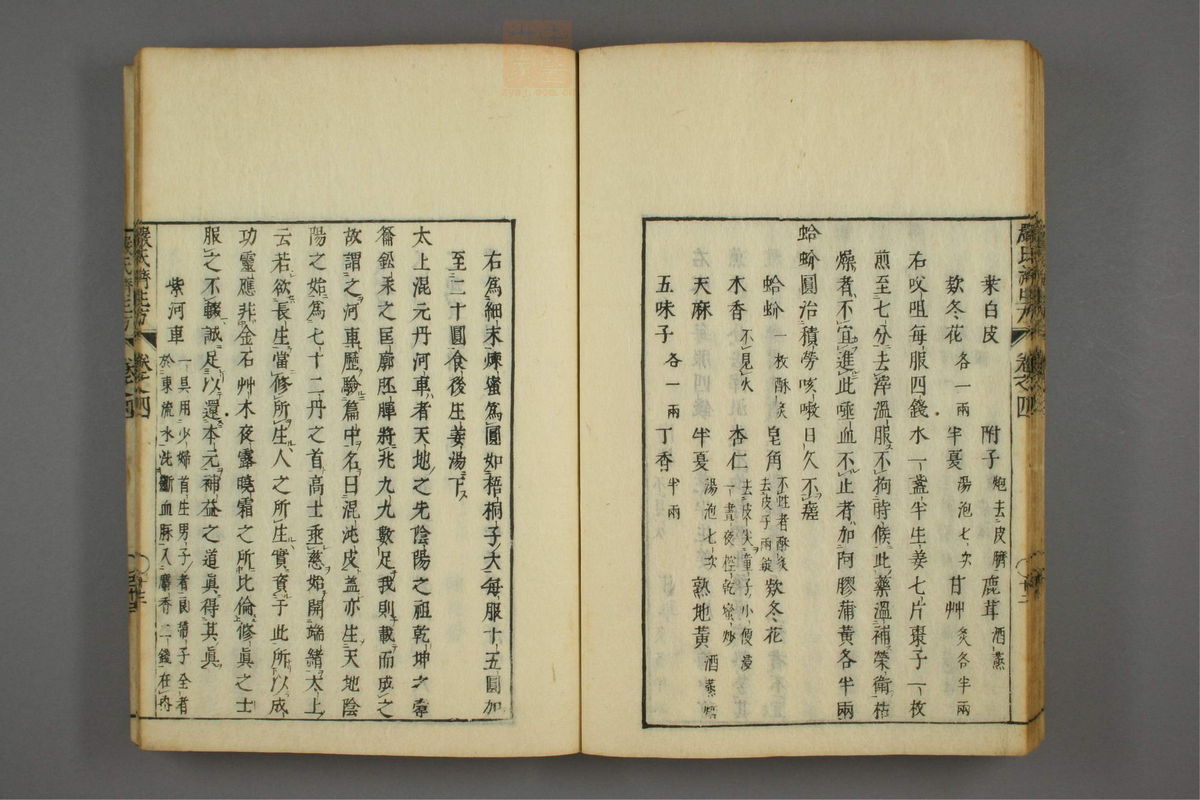 桒白皮　附子炮去皮臍　鹿茸酒蒸
欵冬花各一兩　半夏湯泡七次　甘艸炙各半兩
右㕮咀每服四錢水一盞半生姜七片棗子一枚
煎至七分去滓溫服不拘時候此藥溫補榮衛枯
燥者不宜進此唾血不止者加阿膠蒲黃各半兩
蛤蚧圓治積勞咳嗽日久不瘥
蛤蚧一枚酥炙　皂角不蛀者酥炙去皮子兩錠　欵冬花
木香不見火　杏仁去皮尖童子小便浸一晝夜控乾蜜炒
天麻　半夏湯泡七次　熟地黃酒蒸焙
五味子各一兩　丁香半兩
嚴氏濟生方　卷之四
右爲細末煉蜜爲圓如梧桐子大每服十五圓加
至二十圓食後生姜湯下
太上混元丹河車者天地之先陰陽之祖乾坤之槖
籥鉛汞之匡廓胚暉將兆九九數足我則載而成之
故謂之河車歷驗篇中名曰混沌皮蓋亦生天地陰
陽之始爲七十二丹之首高士垂慈始開端緒太上
云若欲長生當修所生人之所生實資于此所以成
功靈應非金石艸木夜露曉霜之所比倫修眞之士
服之不輟誠足以還本元補益之道眞得其眞
紫河車一具用少婦首生男子者良帶子全者
於東流水洗斷血脉入麝香二錢在內
嚴氏濟生方　卷之四